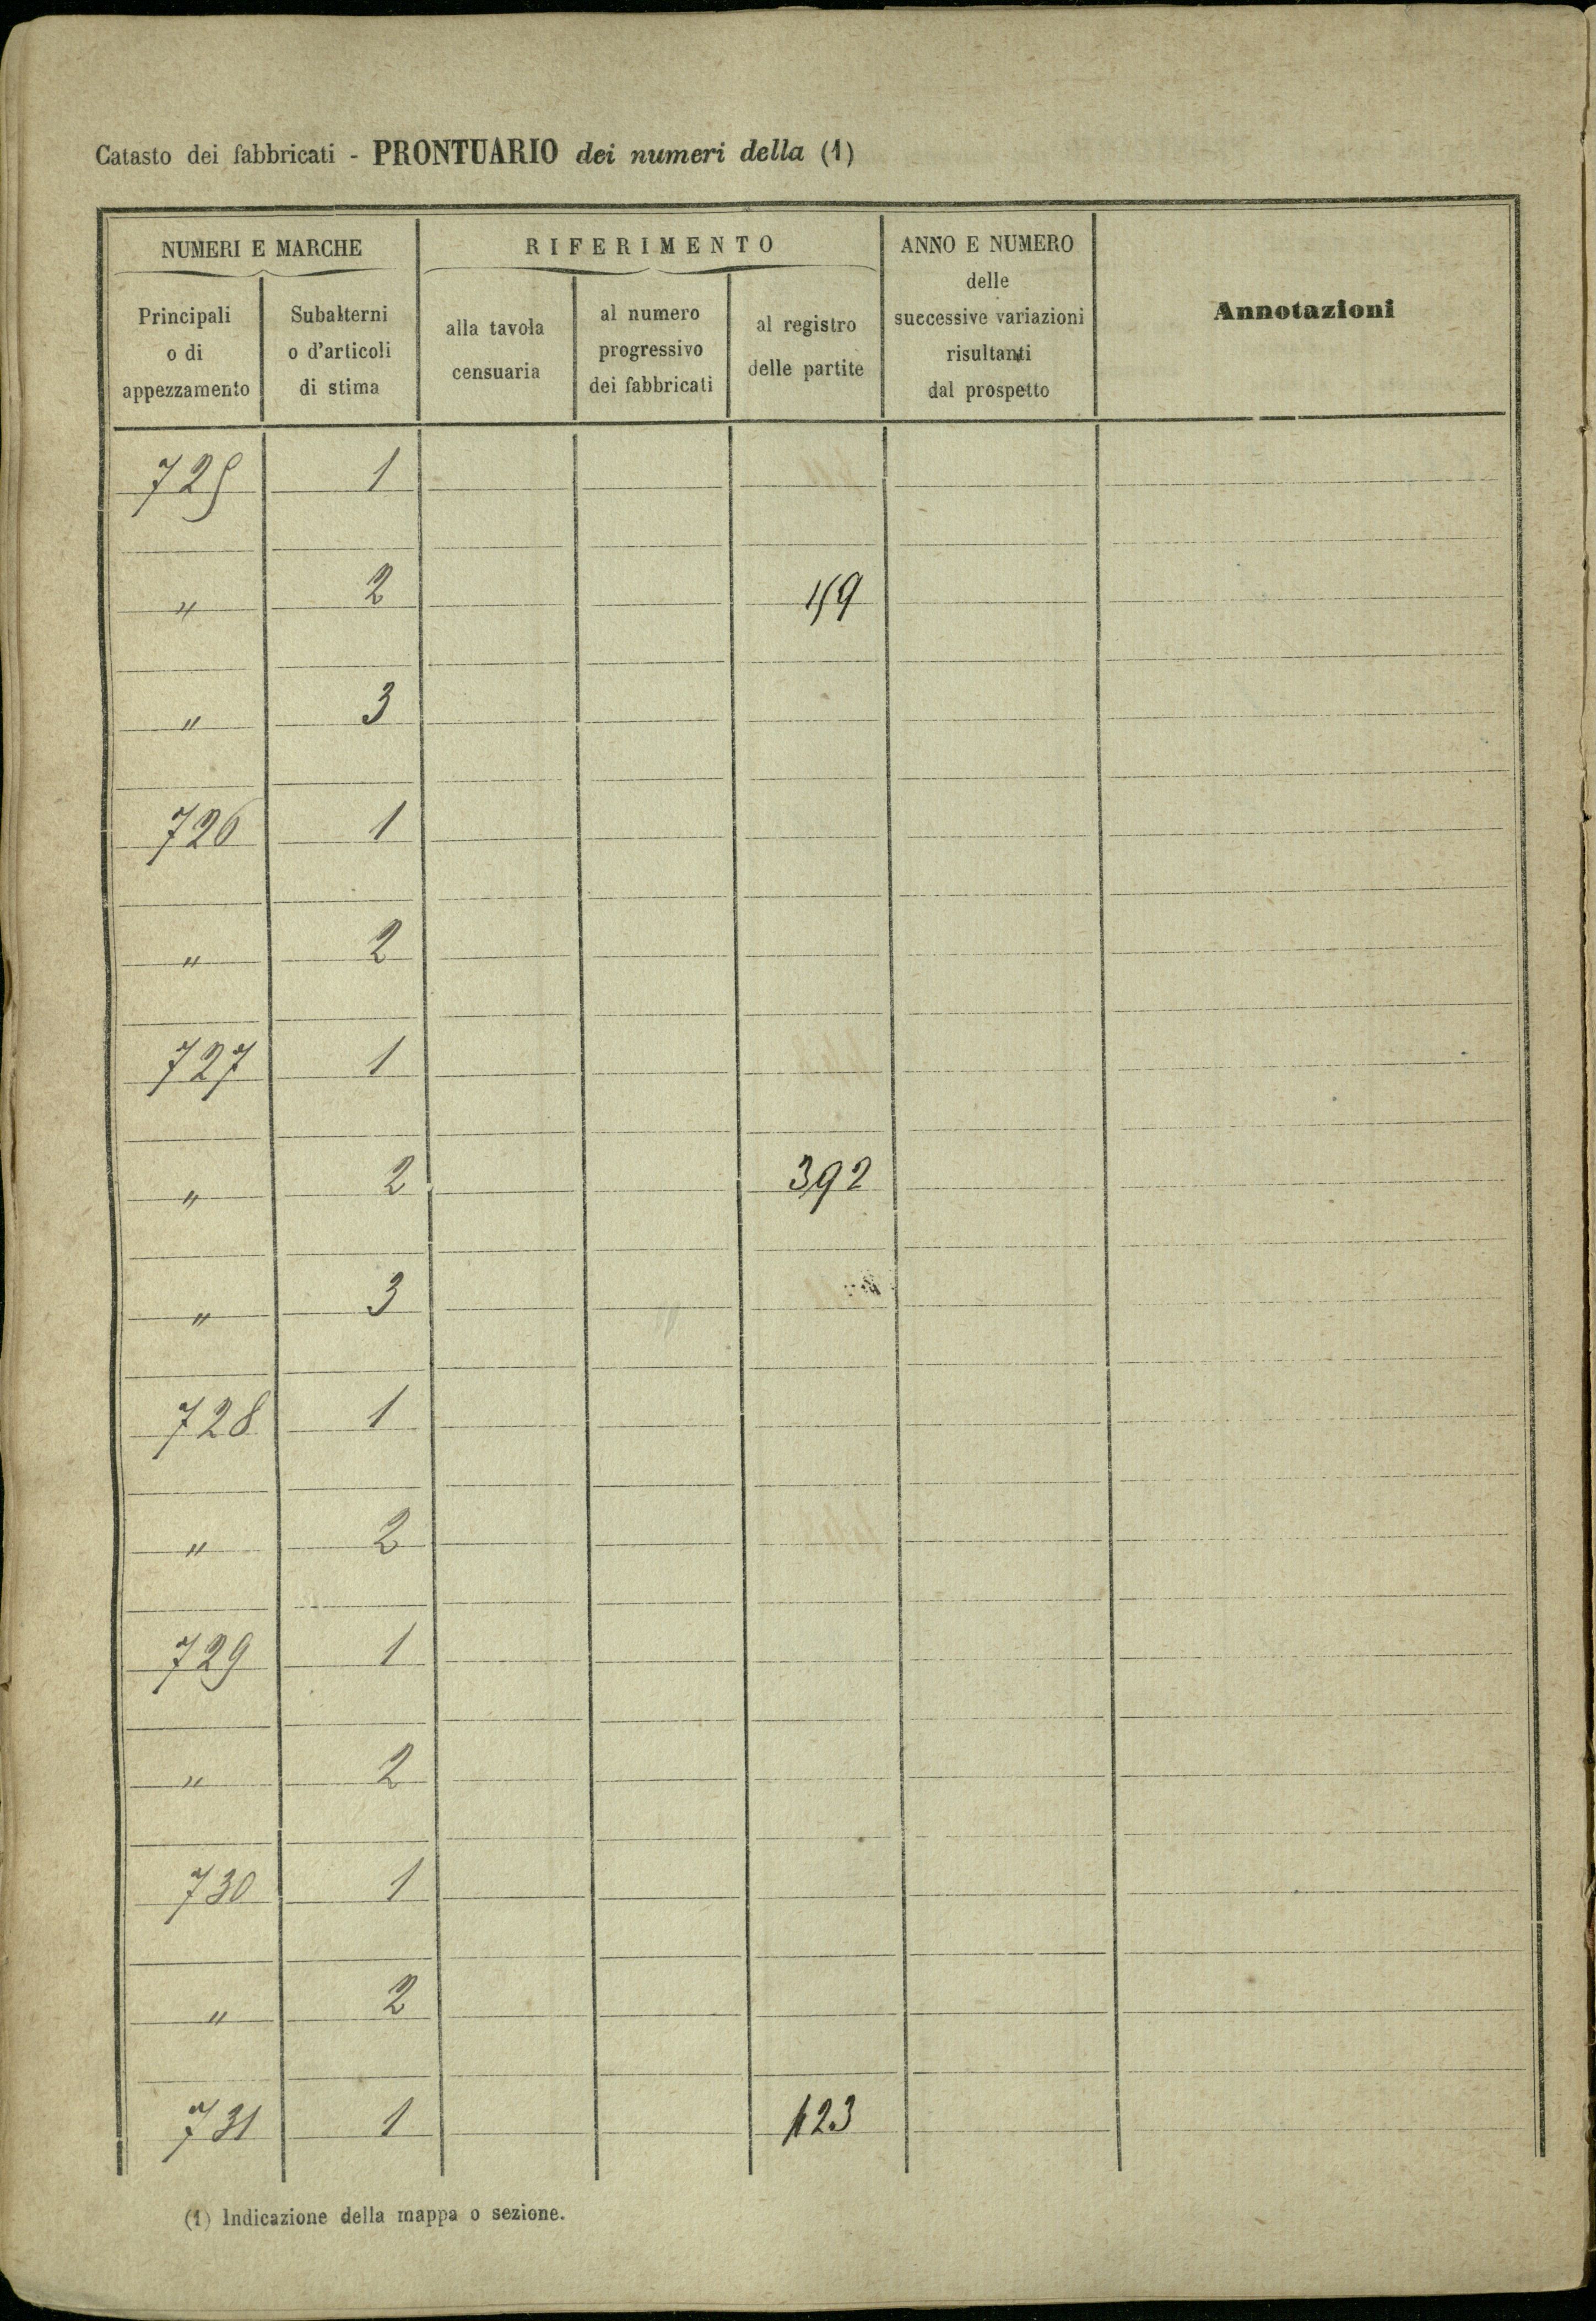 Catasto dei fabbricati - PRONTUARIO dei numeri della (1)
NUMERI E MARCHE
RIFERIMENTO
ANNO E NUMERO
delle
successive variazioni
risultanti
dal prospetto
Annotazioni
Principali
o di
appezzamento
Subalterni
o d'articoli
di stima
alla tavola
censuaria
al numero
progressivo
dei fabbricati
al registro
delle partite
725 1
" 2
" 3
726 1
" 2
727 1
" 2 392
" 3
728 1
" 2
729 1
" 2
730 1
" 2
731 1 123
(1) Indicazione della mappa o sezione.